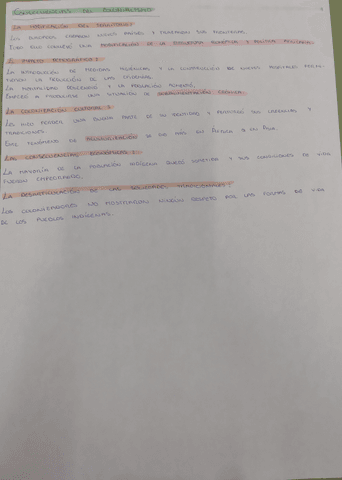 CONSECUENCIAS DEL COLONIALISMO
LA MODIFICACIÓN DEL TERRITORIO:
LOS EUROPEOS CREARON NUEVOS PAÍSES Y TRAZARON SUS FRONTERAS.
ESTO HIZO CAMBIAR UNA MODIFICACIÓN DE LA ESTRUCTURA ECONÓMICA Y POLÍTICA
EL IMPACTO DEMOGRÁFICO:
LA INTRODUCCIÓN DE MEDIDAS HIGIÉNICAS Y LA CONSTRUCCIÓN DE NUEVOS HOSPITALES
LA REDUCCIÓN DE LAS EPIDEMIAS.
LA MORTALIDAD DESCENDIÓ Y LA POBLACIÓN AUMENTÓ.
EMPEZÓ A PRODUCIRSE UNA SITUACIÓN DE SUBALIMENTACIÓN CRÓNICA.
LA COLONIZACIÓN CULTURAL:
LES HIZO PERDER UNA BUENA PARTE DE SU IDENTIDAD Y PERDIERON SUS Y
TRADICIONES.
ESTE FENÓMENO DE ACULTURIZACIÓN SE DIO MÁS EN ÁFRICA Q EN ASIA.
LAS CONSECUENCIAS ECONÓMICAS:
LA MAYORÍA DE LA POBLACIÓN INDÍGENA QUEDÓ SOMETIDA Y SUS CONDICIONES DE VIDA
FUERON EMPEORANDO.
LA DESARTICULACIÓN DE LAS SOCIEDADES TRADICIONALES:
LOS COLONIZADORES NO MOSTRARON NINGÚN RESPETO POR LAS FORMAS DE VIDA
DE LOS PUEBLOS INDÍGENAS.